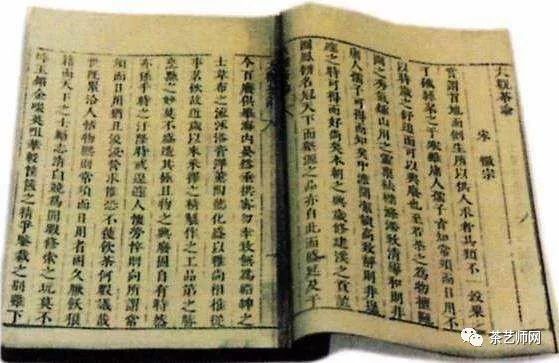 大觀茶論
宋 徽宗
嘗謂首地而倒生所以供人求者其類不一穀粟之
于饑絲枲之于寒雖庸人孺子皆知常須而日用不
以時歲之舒迫而可以興廢也至若茶之為物擅甌
閩之秀氣鍾山川之靈稟祛襟滌滯致清導和則非
庸人孺子可得而知矣沖澹閒潔韻高致靜則非遑
遽之時可得而好尚矣本朝之興歲修建溪之貢龍
團鳳餅名冠天下而壑源之品亦自此而盛延及于
今百廢俱舉海內晏然垂拱密勿幸致無為縉紳之
士韋布之流沐浴膏澤薰陶德化盛以雅尚相推從
事茗飲故近歲以來采擇之精製作之工品第之勝
烹點之妙莫不盛造其極且物之興廢固自有時然
亦係乎時之汙隆時或遑遽人懷勞悴則向所謂常
須而日用猶且汲汲營求惟恐不獲飲茶何暇議哉
世既累洽人恬物熙則常須而日用者固久厭飫狼
籍而天下之士勵志清白競為閒暇修索之玩莫不
碎玉鏘金啜英咀華較筐篋之精爭鑒裁之別雖下
茶艺师网